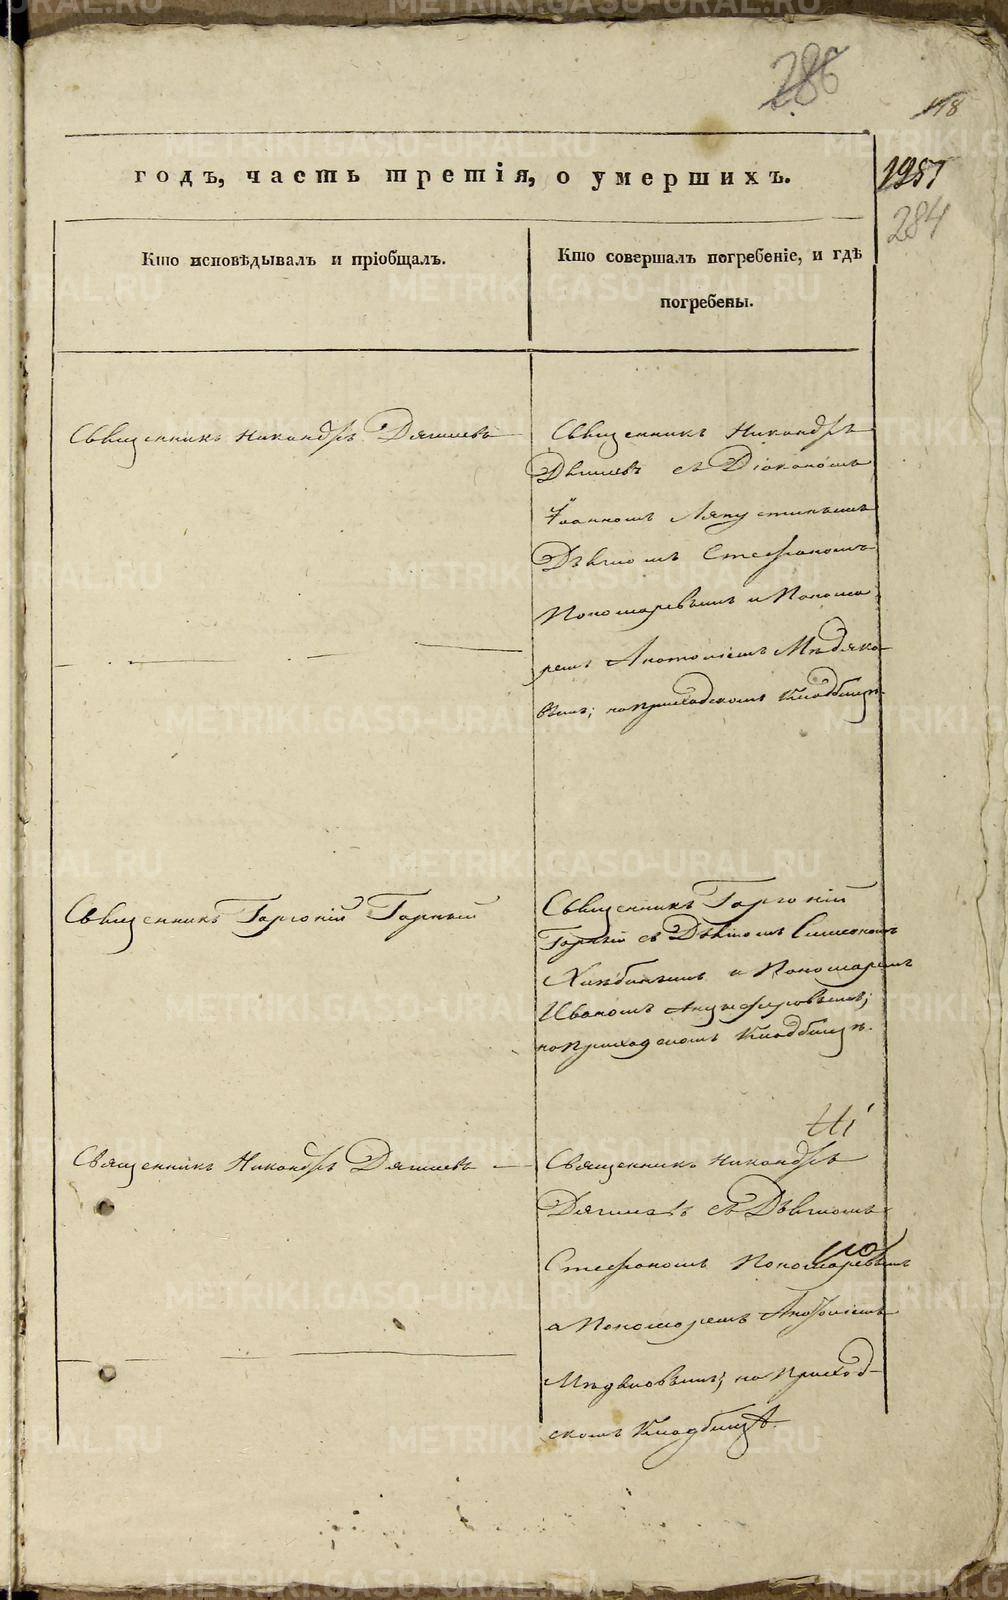 286
118
годъ, часть третія, о умершихъ.
1257
284
Кто исповѣдывалъ и пріобщалъ.
Кто совершалъ погребеніе, и гдѣ
погребены.
Священникъ Никандръ Дягилевъ
Священникъ Никандръ
Дягилевъ съ Діакономъ
Іоанномъ Ляпустинымъ
Дьячкомъ Стефаномъ
Пономаревымъ и Понома-
ремъ Анатоліемъ Мѣдяко-
вымъ; на приходскомъ кладбищѣ.
Священникъ Горгоній Горный
Священникъ Горгоній
Горный съ Дьячкомъ Симеономъ
Хлѣбинымъ и Пономаремъ
Иваномъ Анцыферовымъ;
на приходскомъ кладбищѣ.
Священникъ Никандръ Дягилевъ
Священникъ Никандръ
Дягилевъ съ Дьячкомъ
Стефаномъ Пономаревымъ
и Пономаремъ Анатоліемъ
Мѣдяковымъ; на приход-
скомъ кладбищѣ.
METRIKI.GASO-URAL.RU